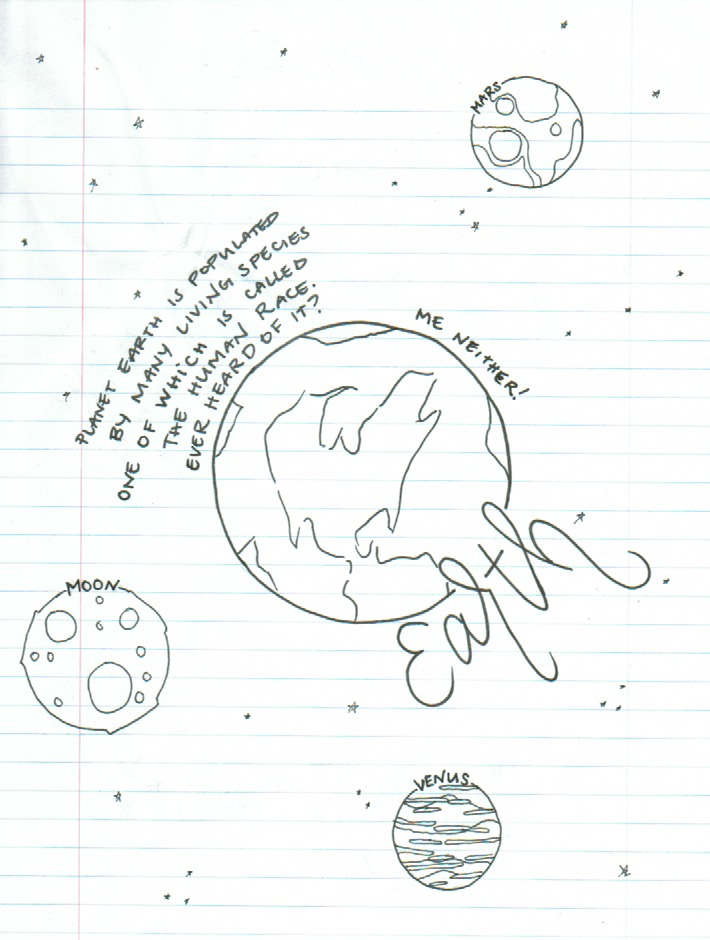 MARS
PLANET EARTH IS POPULATED
BY MANY LIVING SPECIES
ONE OF WHICH IS CALLED
THE HUMAN RACE.
EVER HEARD OF IT?
ME NEITHER!
Earth
MOON
VENUS